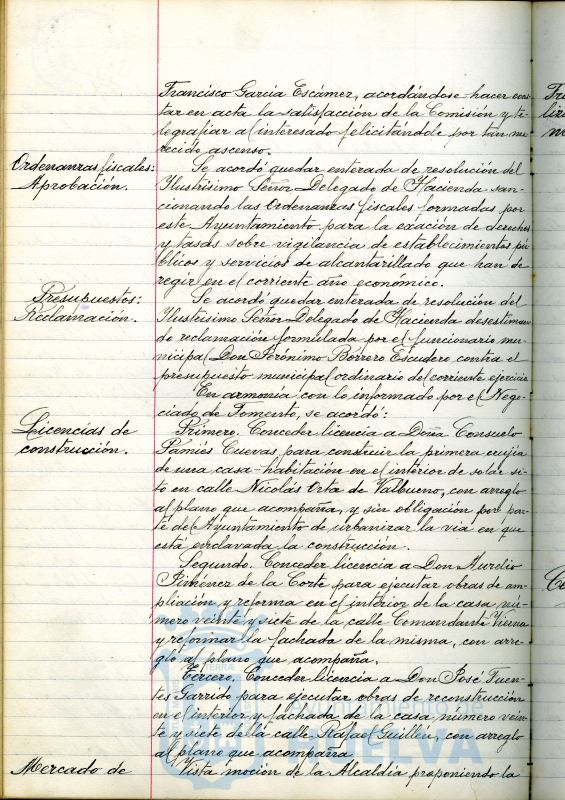 Francisco García Escámez, acordándose hacer cons-
tar en acta la satisfacción de la Comisión y te-
legrafiar al interesado felicitándole por tan me-
recido ascenso.
Ordenanzas fiscales:
Aprobación.
Se acordó quedar enterada de resolución del
Ilustrísimo Señor Delegado de Hacienda san-
cionando las Ordenanzas fiscales formadas por
este Ayuntamiento para la exación de derechos
y tasas sobre vigilancia de establecimientos pú-
blicos y servicios de alcantarillado que han de
regir en el corriente año económico.
Presupuestos:
Reclamación.
Se acordó quedar enterada de resolución del
Ilustrísimo Señor Delegado de Hacienda desestiman-
do reclamación formulada por el funcionario mu-
nicipal Don Jerónimo Borrero Escudero contra el
presupuesto municipal ordinario del corriente ejercicio
En armonía con lo informado por el Nego-
ciado de Fomento, se acordó:
Licencias de
construcción.
Primero. Conceder licencia a Doña Consuelo
Pamiés Cuevas para construir la primera crujía
de una casa-habitación en el interior de solar si-
to en calle Nicolás Orta de Valbueno, con arreglo
al plano que acompaña, y sin obligación por par-
te del Ayuntamiento de urbanizar la vía en que
está enclavada la construcción.
Segundo. Conceder licencia a Don Aurelio
Jiménez de la Corte para ejecutar obras de am-
pliación y reforma en el interior de la casa nú-
mero veinte y siete de la calle Comandante Vierna
y reformar la fachada de la misma, con arre-
glo al plano que acompaña.
Tercero. Conceder licencia a Don José Fuen-
tes Garrido para ejecutar obras de reconstrucción
en el interior y fachada de la casa número vein-
te y siete de la calle Rafael Guillén, con arreglo
al plano que acompaña
Mercado de
Vista moción de la Alcaldía proponiendo la
Ayuntamiento de
HUELVA